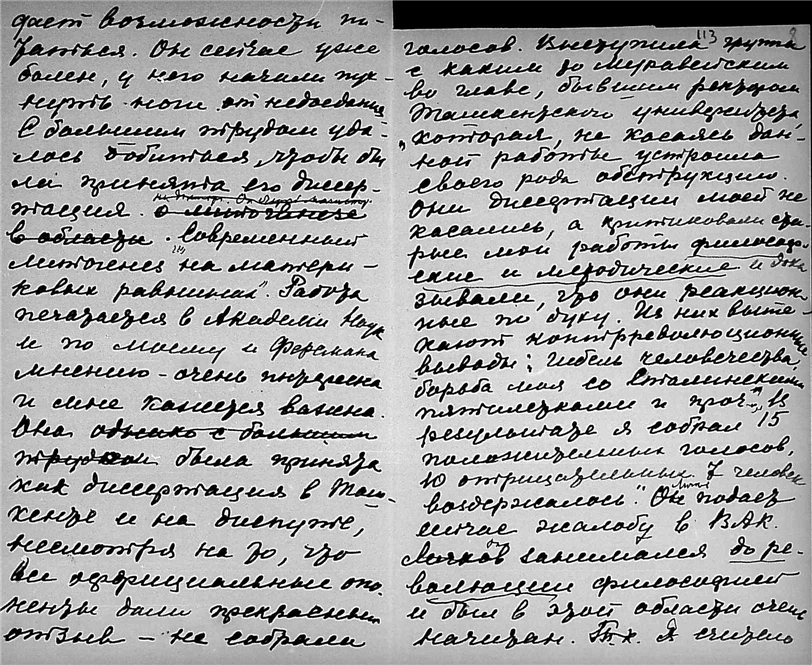 дает возможности пи-
таться. Он сейчас уже
болен, у него начали пух-
нуть ноги от недоедания
С большим трудом уда-
лось добиться, чтобы бы-
ла принята его диссер-
на доктора. Он
тация. о литогенезе
в области. "Современный
литогенез на матери-
ковых равнинах". Работа
печатается в Академии Наук
и по моему и Ферсмана
мнению – очень интересна
и мне кажется важна.
Она однако с большим
трудом была принята
как диссертация в Таш-
кенте и на диспуте,
несмотря на то, что
все официальные опо-
ненты дали прекрасный
отзыв – не собрала
113
голосов. Выступила группа
с каким то Муравейским
во главе, бывшим ректором
Ташкентского университета
"которая, не касаясь дан-
ной работы устроила
своего рода обструкцию.
Они диссертации моей не
касались, а критиковали ста-
рые мои работы философ-
ские и методические и дока
зывали, что они реакцион-
ные по духу. Из них выте-
кают контрреволюционные
выводы: гибель человечества,
борьба моя со Сталинскими
пятилетками и проч." "В
результате я собрал 15
положительных голосов,
10 отрицательных 7 человек
воздержалось." Он подает
сейчас жалобу в ВАК.
Личков занимался до ре-
волюции философией
и был в этой области очень
начитан. Т.к. Я считаю